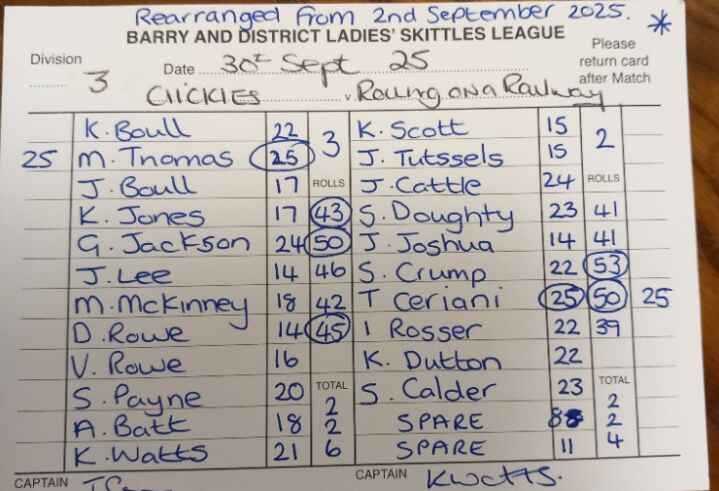 Rearranged from 2nd September 2025. *
BARRY AND DISTRICT LADIES' SKITTLES LEAGUE
Please return card after Match
Division 3
Date 30th Sept 25
v.
K. Boull 22 3 K. Scott 15 2
25 M. Thomas 25 J. Tutssels 15
J. Boull 17 ROLLS J. Cattle 24 ROLLS
K. Jones 17 43 S. Doughty 23 41
G. Jackson 24 50 J. Joshua 14 41
J. Lee 14 46 S. Crump 22 53
M. McKinney 18 42 T Ceriani 25 50 25
D. Rowe 14 45 I Rosser 22 39
V. Rowe 16 K. Dutton 22
S. Payne 20 TOTAL S. Calder 23 TOTAL
A. Batt 18 2 2 SPARE 8 2 2
K. Watts 21 6 SPARE 11 4
CAPTAIN CAPTAIN KWatts.